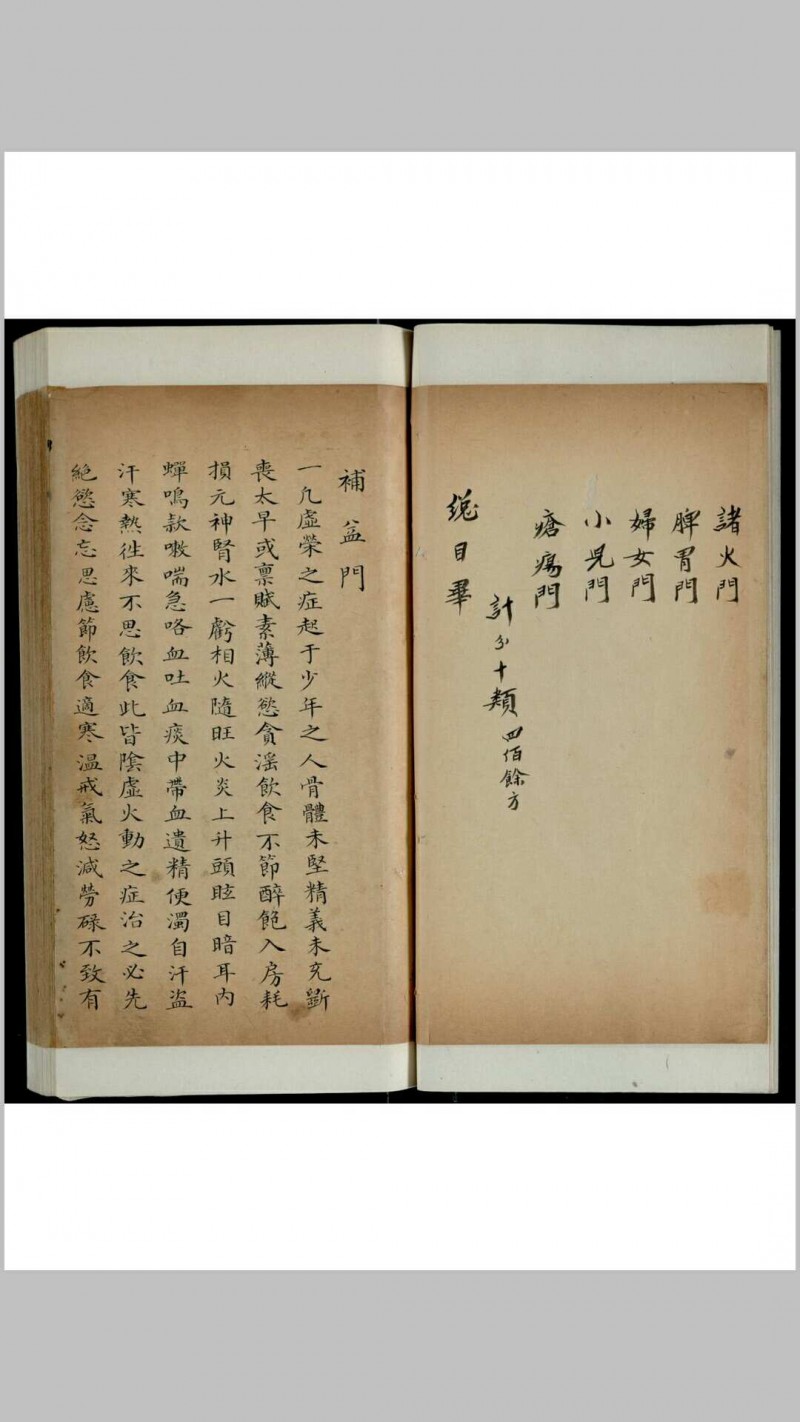 諸火門
脾胃門
婦女門
小兒門
瘡瘍門
計分十類四佰餘方
總目畢
補益門
一凡虛榮之症起于少年之人骨體未堅精義未充斵
喪太早或禀賦素薄縱慾貪滛飲食不節醉飽入房耗
損元神腎水一虧相火隨旺火炎上升頭眩目暗耳內
蟬鳴欬嗽喘急咯血吐血痰中帶血遺精便濁自汗盜
汗寒熱徃來不思飲食此皆陰虛火動之症治之必先
絕慾念忘思慮節飲食適寒温戒氣怒減勞碌不致有